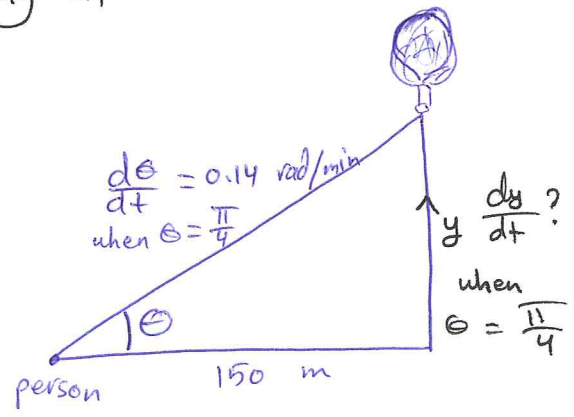 dθ/dt = 0.14 rad/min
when θ = π/4
y dy/dt ?
when
θ = π/4
θ
150 m
person